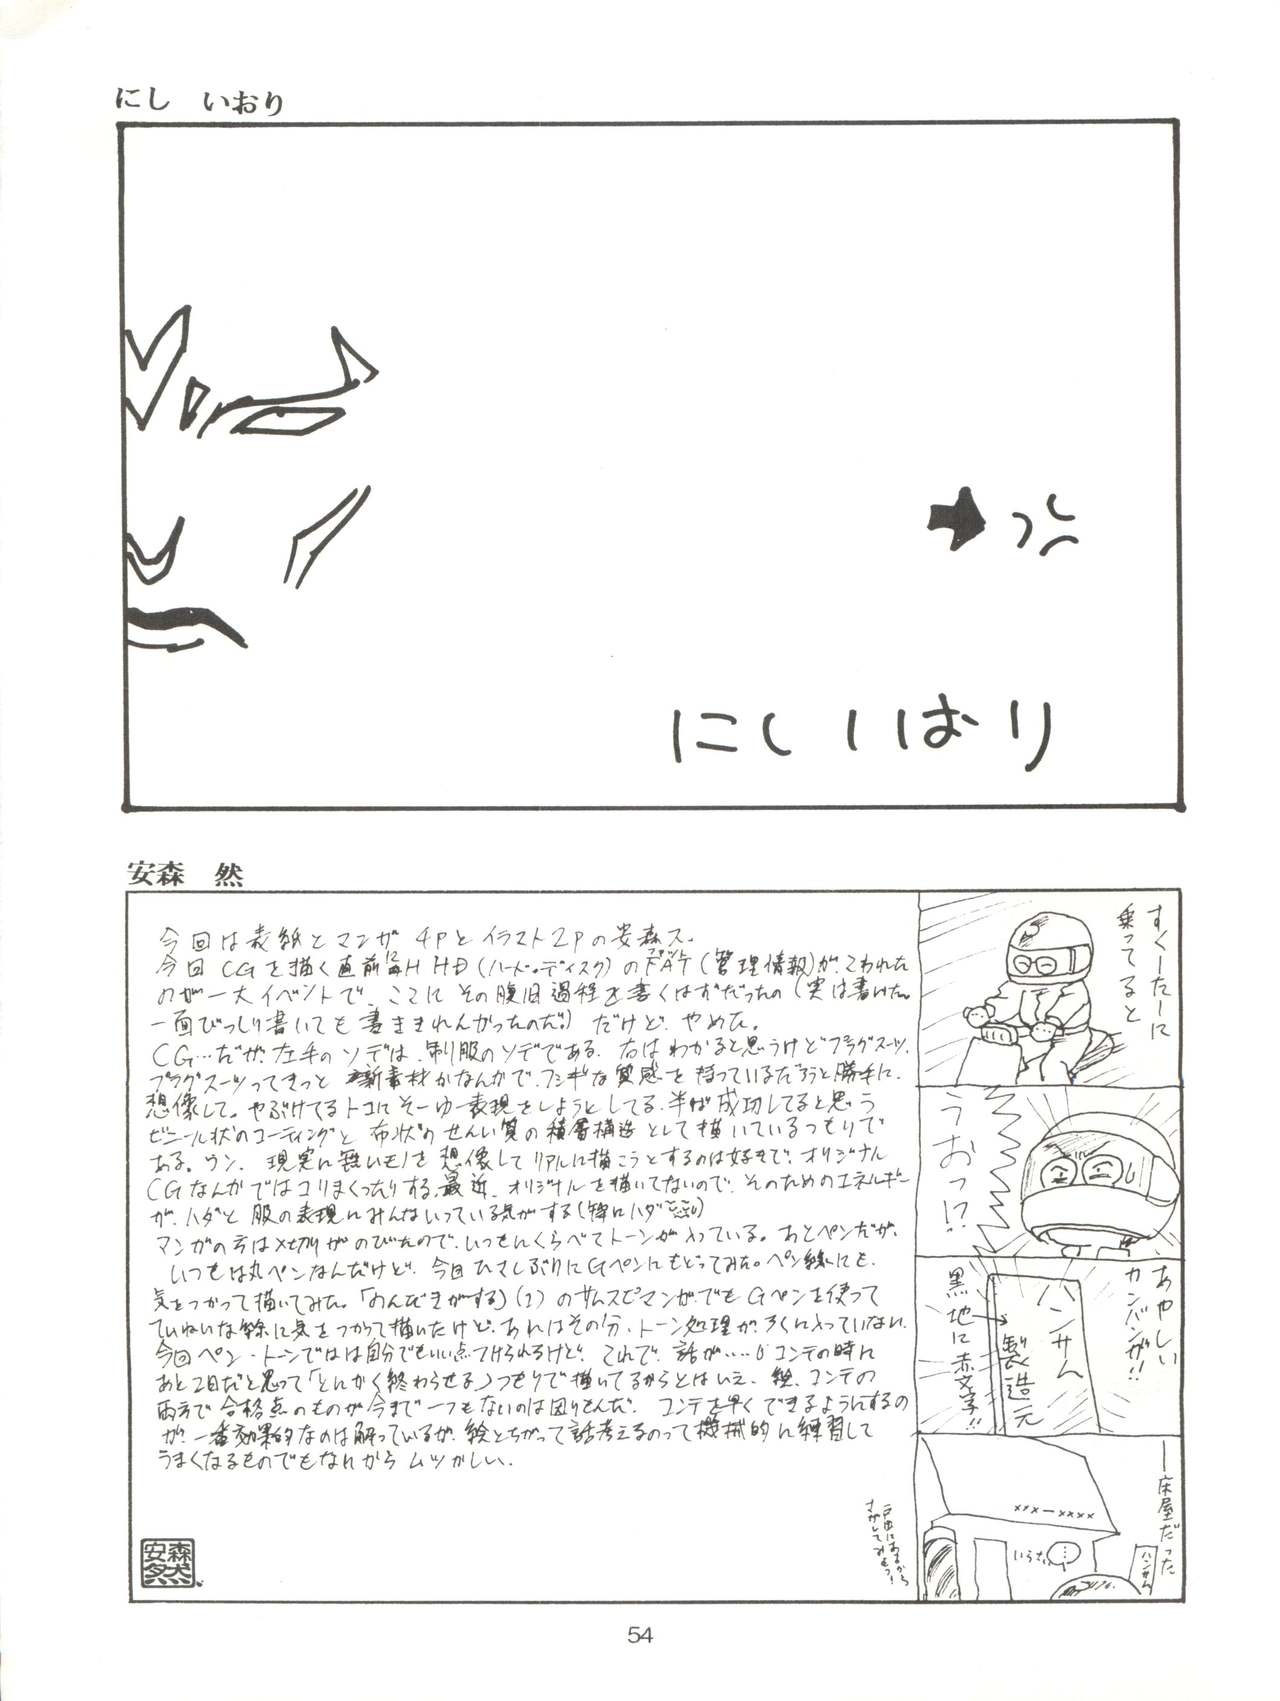 にし いおり
にしいおり
安森 然
今回は表紙とマンガ4Pとイラスト2Pの安森ス。
今回CGを描く直前に毎H HD(ハード・ディスク)のFAT(管理情報)がこわれた
のが一大イベントで、ここにその復旧過程を書くはずだったの(実は書いた。
一面びっしり書いても書ききれんかったのだ!)だけど、やめた。
CG…だが、左手のソデは、制服のソデである。右はわかると思うけどプラグスーツ。
プラグスーツってきっと新素材かなんかで、フシギな質感を持っているだろうと勝手に
想像して。やぶけてるトコにそーゆー表現をしようとしてる。半ば成功してると思う
ビニール状のコーティングと布状のせんい質の積層構造として描いているつもりで
ある。ウン、現実に無いモノを想像してリアルに描こうとするのは好きで、オリジナル
CGなんかではコリまくったりする。最近、オリジナルを描いてないので、そのためのエネルギー
が、ハダと服の表現にみんないっている気がする(特にハダ)
マンガの方は〆切りがのびたので、いつもにくらべてトーンが入っている。あとペンだが、
いつもは丸ペンなんだけど、今回ひさしぶりにGペンにもどってみた。ペン線にも、
気をつかって描いてみた。「のんびきがする」(1)のサムスピマンガでもGペンを使って
ていねいな線に気をつかって描いたけど、あれはその分、トーン処理がろくに入っていない。
今回ペン・トーンでは自分でもいい点つけられるけど、これで、話が……コンテの時に
あと2日だと思って「とにかく終わらせる」つもりで描いてるからとはいえ、絵、コンテの
両方で合格点のものが今まで一つもないのは困りもんだ。コンテを早くできるようにするの
が、一番効果的なのは解っているが、絵とちがって話考えるのって機械的に練習して
うまくなるものでもないから ムツかしい。
安森然
すくーたーに
乗ってると
うおっ!?
あやしい
カンバンが!!
ハンサム
製造元
黒地に赤文字!!
―床屋だった
×××ー××××
いらさい
…
ハンサム
戸田にあるから
さがしてみよっ!
54